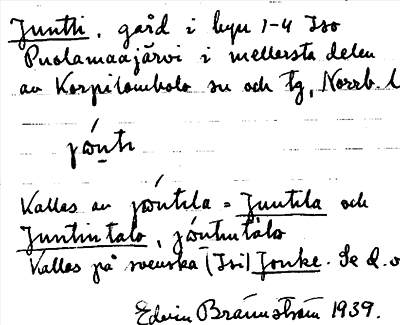 Juntti, gård i byn 1-4 Iso
Puolamaajärvi i mellersta delen
av Korpilombolo sn och tg, Norrb. l
júnti
Kallas av júntila = Juntila och
Juntintalo, júntintalo
Kallas på svenska (Isi) Jonke. Se d. o
Edvin Brännström 1939.